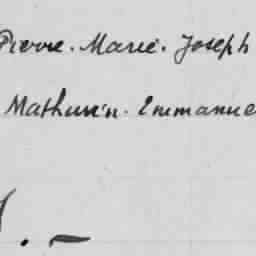 Pierre. Marie. Joseph
Mathurin. Emmanue
. —